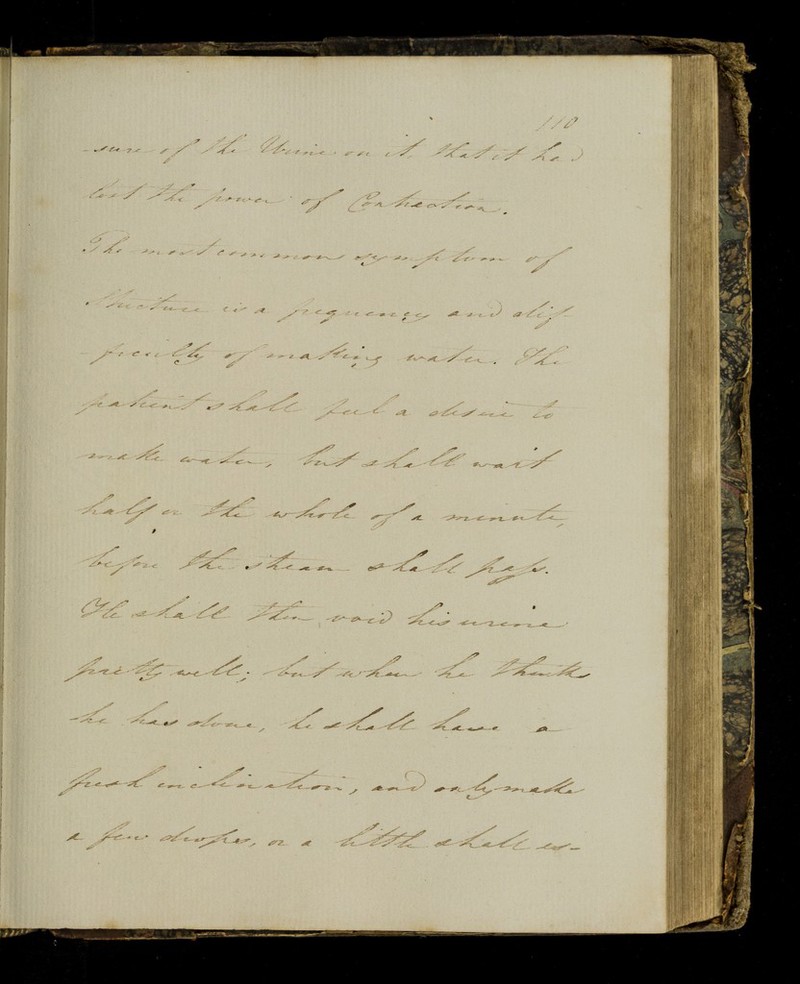 110
-sure of the Urine on it, that it had
lost the power of Contraction.
The most common symptom of
Stricture is a frequency and dif-
-ficulty of making water. The
patient shall feel a desire to
make water, but shall wait
half or the whole of a minute,
before the stream shall pass.
He shall then void his urine
pretty well; but when he thinks
he has done, he shall have a
fresh inclination, and only make
a few drops, or a little shall es-